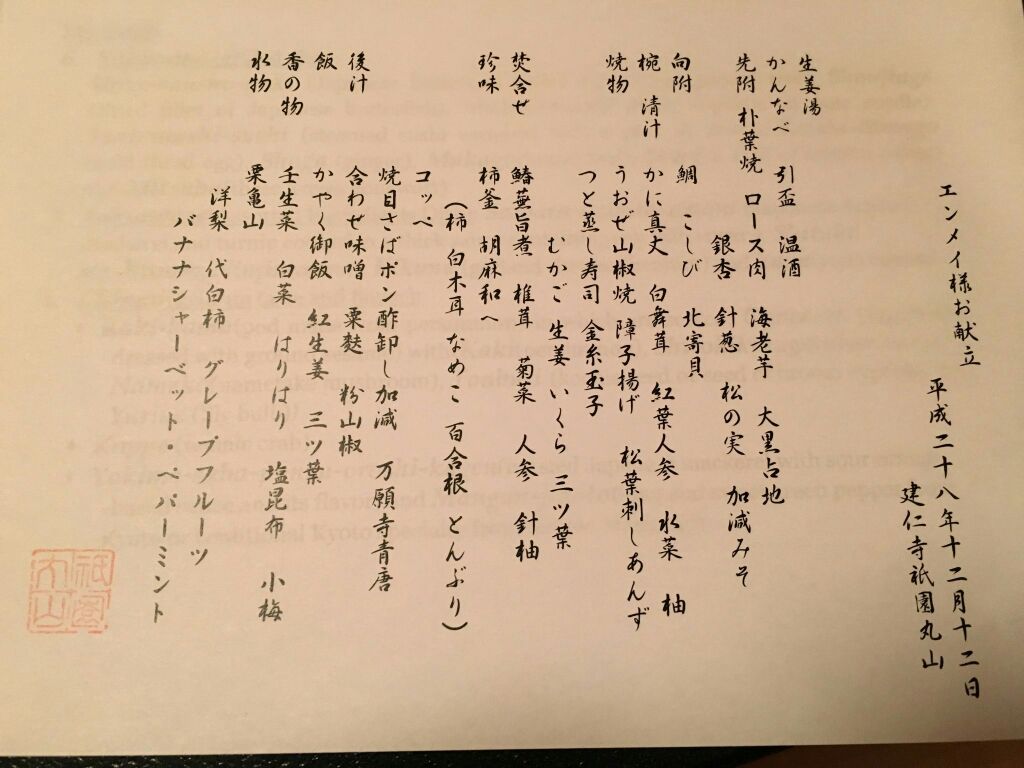 エンメイ様お献立　平成二十八年十二月十二日
建仁寺祇園丸山
生姜湯
かんなべ　引盃　温酒
先附　朴葉焼　ロース肉　海老芋　大黒占地
銀杏　針葱　松の実　加減みそ
向附　鯛　こしび　北寄貝
椀　清汁　かに真丈　白舞茸　紅葉人参　水菜　柚
焼物　うおぜ山椒焼　障子揚げ　松葉刺しあんず
つと蒸し寿司　金糸玉子
むかご　生姜　いくら　三ツ葉
焚合せ　鰆蕪旨煮　椎茸　菊菜　人参　針柚
珍味　柿釜　胡麻和へ
（柿　白木耳　なめこ　百合根　とんぶり）
コッペ
焼目さばポン酢卸し加減　万願寺青唐
後汁　合わせ味噌　粟麩　粉山椒
飯　かやく御飯　紅生姜　三ツ葉
香の物　壬生菜　白菜　はりはり　塩昆布　小梅
水物　栗亀山
洋梨　代白柿　グレープフルーツ
バナナシャーベット・ペパーミント
祇園
丸山